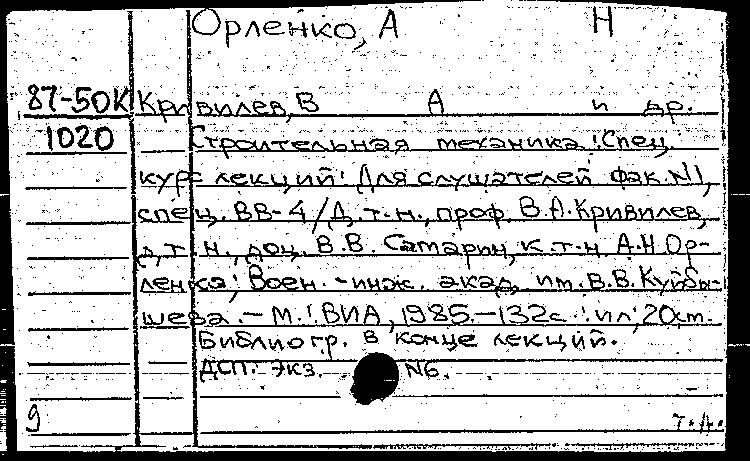 Орленко, А Н
87-50К Кривилев, В А и др.
1020 Строительная механика: Спец.
курс лекций: Для слушателей фак. N1,
спец. ВВ-4/Д.т.н., проф. В.А.Кривилев,
д.т.н., доц. В.В. Сатарин, к.т.н. А.Н.Ор-
ленко; Воен.-инж. акад. им. В.В.Куйбы-
шева.-М.:ВИА, 1985.-132с.:ил; 20см.
Библиогр. в конце лекций.
ДСП. Экз. N6.
9